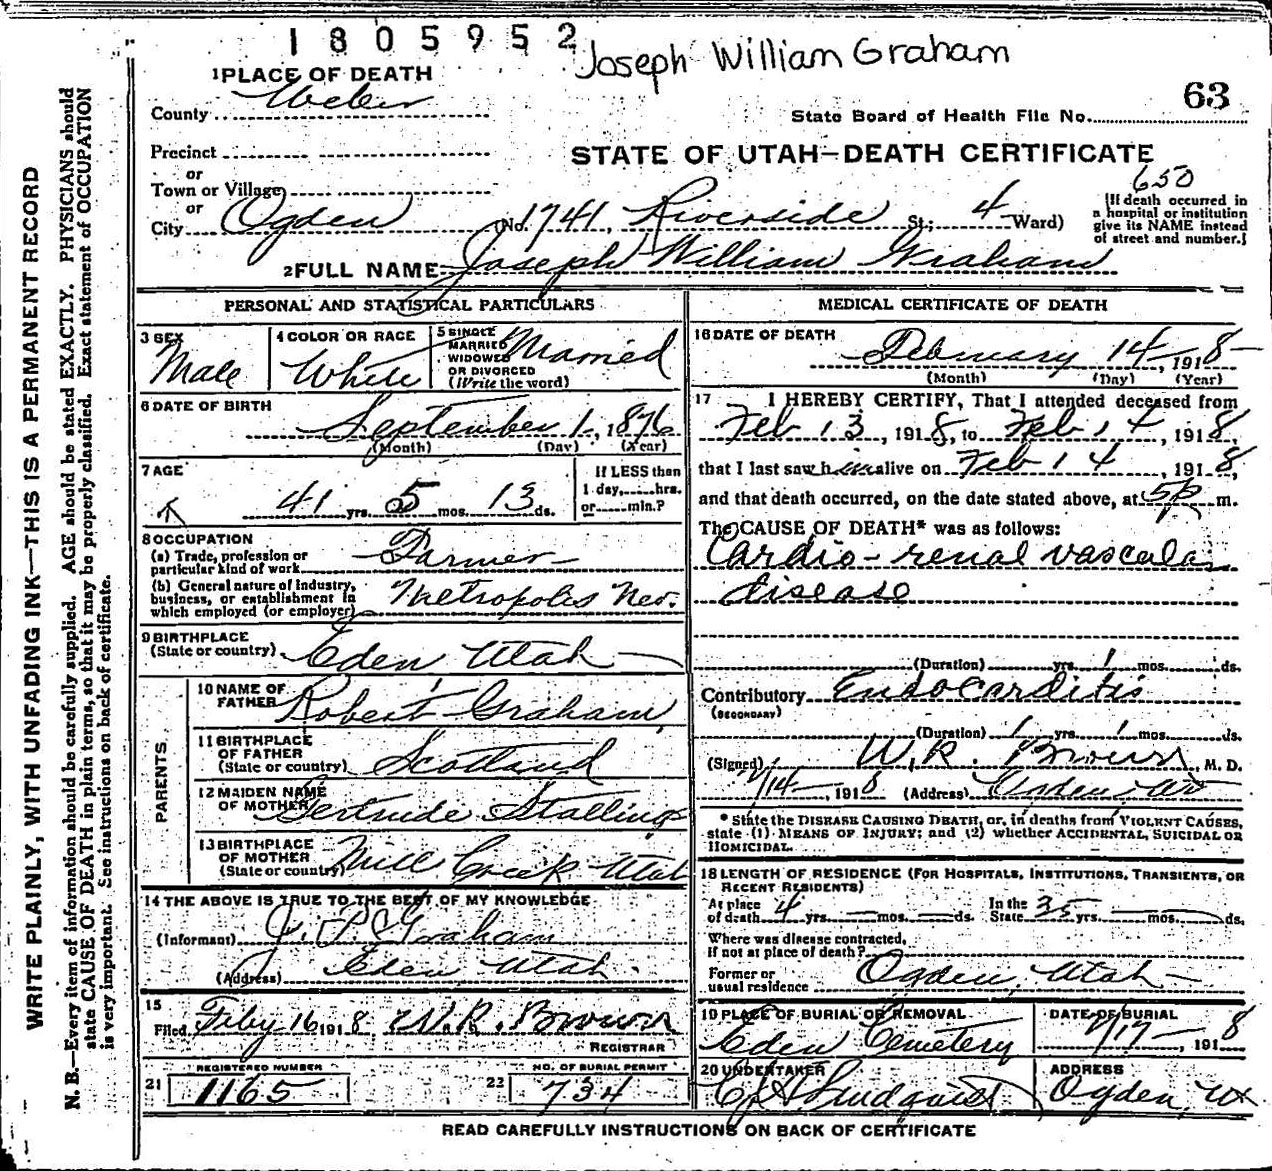 1805952
Joseph William Graham
1 PLACE OF DEATH
County Weber
63
State Board of Health File No.
Precinct
or
Town or Village
or
City Ogden (No. 1741, Riverside St.; 4 Ward)
STATE OF UTAH—DEATH CERTIFICATE
650
[If death occurred in
a hospital or institution
give its NAME instead
of street and number.]
2 FULL NAME Joseph William Graham
PERSONAL AND STATISTICAL PARTICULARS
3 SEX
Male
4 COLOR OR RACE
White
5 SINGLE
MARRIED
WIDOWED
OR DIVORCED
(Write the word)
Married
6 DATE OF BIRTH
September 1, 1876
(Month) (Day) (Year)
7 AGE
41 yrs. 5 mos. 13 ds.
If LESS than
1 day, hrs.
or min.?
8 OCCUPATION
(a) Trade, profession or
particular kind of work Farmer
(b) General nature of industry,
business, or establishment in
which employed (or employer) Metropolis Nev.
9 BIRTHPLACE
(State or country) Eden Utah
PARENTS
10 NAME OF
FATHER Robert Graham
11 BIRTHPLACE
OF FATHER
(State or country) Scotland
12 MAIDEN NAME
OF MOTHER Gertrude Stallings
13 BIRTHPLACE
OF MOTHER
(State or country) Mill Creek Utah
14 THE ABOVE IS TRUE TO THE BEST OF MY KNOWLEDGE
(Informant) Graham
(Address) Eden Utah.
15
Filed Feby 16 1918 W.R. Brown
REGISTRAR
REGISTERED NUMBER
21 1165
NO. OF BURIAL PERMIT
22 734
MEDICAL CERTIFICATE OF DEATH
16 DATE OF DEATH
February 14, 1918
(Month) (Day) (Year)
17 I HEREBY CERTIFY, That I attended deceased from
Feb 13, 1918, to Feb 14, 1918,
that I last saw him alive on Feb 14, 1918,
and that death occurred, on the date stated above, at 5p m.
The CAUSE OF DEATH* was as follows:
Cardio-renal vascular
disease
(Duration) yrs. 1 mos. ds.
Contributory Endocarditis
(SECONDARY)
(Duration) 1 yrs. 1 mos. ds.
(Signed) W.R. Brown, M. D.
2/14, 1918 (Address) Ogden Ut
* State the DISEASE CAUSING DEATH, or, in deaths from VIOLENT CAUSES,
state (1) MEANS OF INJURY; and (2) whether ACCIDENTAL, SUICIDAL OR
HOMICIDAL.
18 LENGTH OF RESIDENCE (FOR HOSPITALS, INSTITUTIONS, TRANSIENTS, OR
RECENT RESIDENTS)
At place of death 4 yrs. — mos. — ds. In the State 35 yrs. — mos. — ds.
Where was disease contracted,
if not at place of death?
Former or
usual residence Ogden, Utah
19 PLACE OF BURIAL OR REMOVAL
Eden Cemetery
DATE OF BURIAL
2/17, 1918
20 UNDERTAKER
Lindquist
ADDRESS
Ogden, Ut
READ CAREFULLY INSTRUCTIONS ON BACK OF CERTIFICATE
WRITE PLAINLY, WITH UNFADING INK—THIS IS A PERMANENT RECORD
N. B.—Every item of information should be carefully supplied. AGE should be stated EXACTLY. PHYSICIANS should
state CAUSE OF DEATH in plain terms, so that it may be properly classified. Exact statement of OCCUPATION
is very important. See instructions on back of certificate.